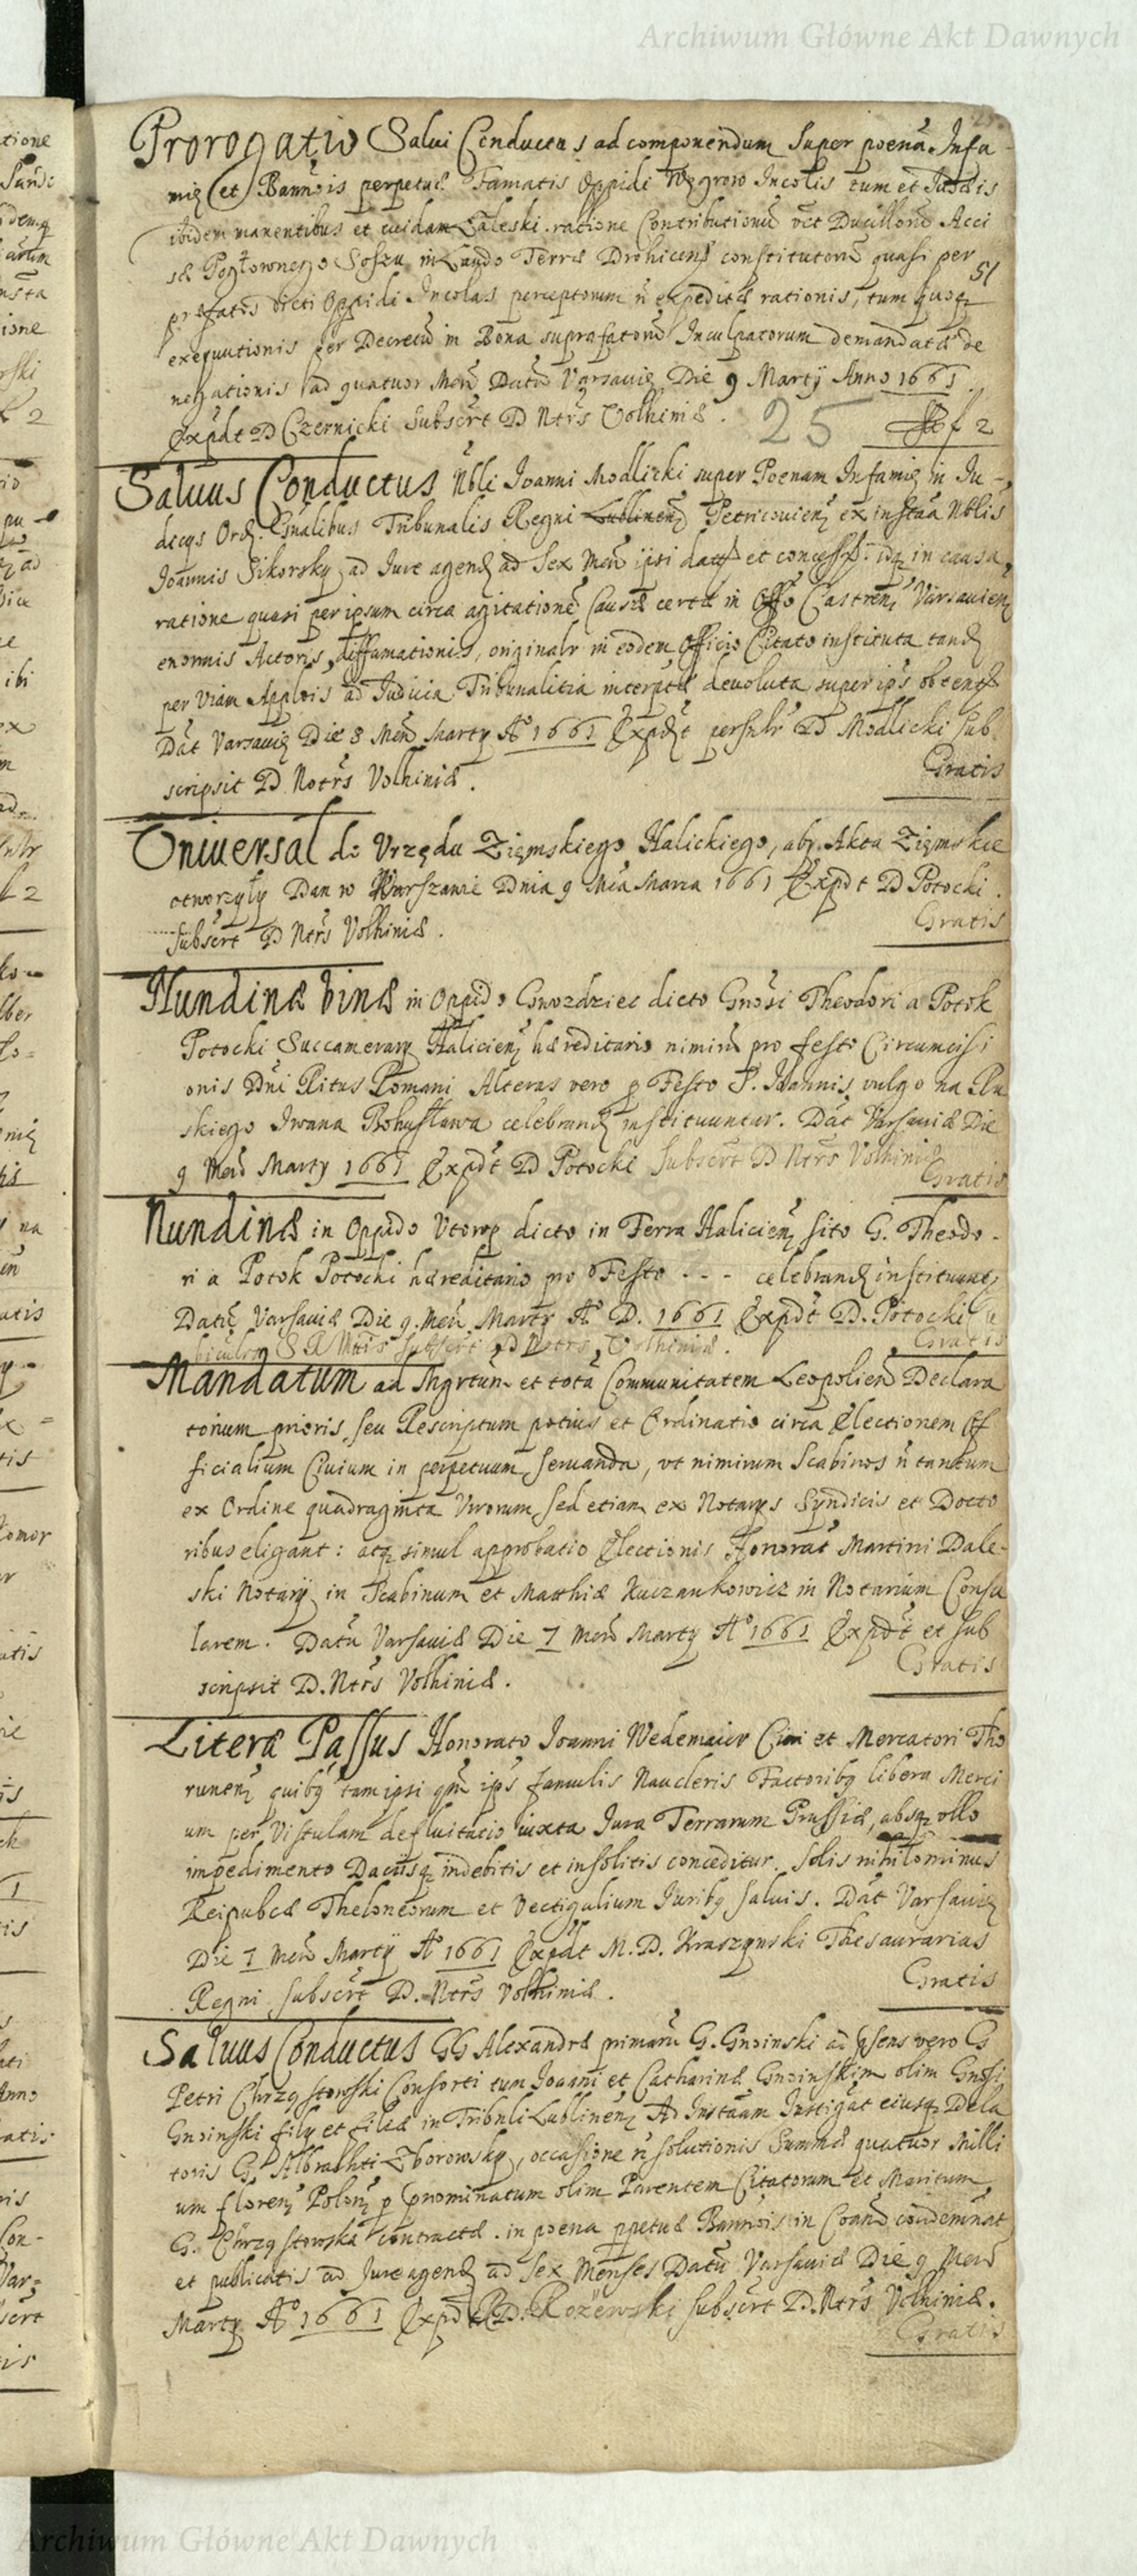 Archiwum Główne Akt Dawnych
Prorogatio Salui Conductus ad componendum super poena Infa-
miæ et Bannois perpetuæ Famatis Oppidi Węgrow Incolis tum et Judæis
ibidem manentibus et cuidam Zaleski ratione Contributionũ vct Ducillorũ Acci
sæ Pogłownego Soszu in Laudo Terræ Drohicens constitutorũ quasi per
51
præfatos dicti Oppidi Incolas perceptorum ñ expeditæ rationis, tum quoqz
exequutionis per Decretũ in Bona suprafatorũ Inculpatorum demandatæ de
negationis ad quatuor Menš Datũ Varsauiæ Die 9 Martÿ Anno 1661.
Expdt D Czernicki Subscrt D Ntrs Volhiniæ.
25
f 2
Saluus Conductus Nbli Joanni Modlicki super Poenam Infamiæ in Ju-
dicÿs Ord. Gnalibus Tribunalis Regni Lublinen Petricouien ex instãa Nblis
Joannis Sikorsky ad Jure agend ad Sex Men ipsi dat et concess. idqz in causa
ratione quasi per ipsum circa agitationẽ Causæ certæ in Offo Castren Varsauien
enormis Actoris diffamationis, originalr in eodem Officio Citato instituta tand
per viam Applois ad Judicia Tribunalitia interptæ deuoluta super ips obtent
Dat Varsauiæ Die 8 Men Martÿ Aº 1661 Expdt persnlr D Modlicki sub
scripsit D Notrs Volhiniæ.
Gratis
Vniuersal do Vrzędu Ziemskiego Halickiego, aby Akta Ziemskie
otworzyły Dan w Warszawie Dnia 9 Mca Marca 1661 Expdt D Potocki.
Subscrt D Ntrs Volhiniæ.
Gratis
Nundinæ binæ in Oppido Gwozdziec dicto Gnosi Theodori a Potok
Potocki Succamerarÿ Halicien hæreditario nimirũ pro festo Circumcisi
onis Dni Ritus Romani Alteras vero p Festo S. Joannis vulgo na Ru
skiego Iwana Bohusława celebrand instituuntur. Dat Varsauiæ Die
9 Men Martÿ 1661 Expdt D Potocki Subscrt D Ntrs Volhiniæ
Gratis
Nundinæ in Oppido Vtorop dicto in Terra Halicien sito G. Theodo-
ri a Potok Potocki hæreditario pro Festo - - - celebrand instituunt
Datũ Varsauiæ Die 9. Men Martÿ Aº D. 1661 Expdt D. Potocki
S R Mtis Subscrt D Ntrs Volhiniæ.
Gratis
Mandatum ad Mgrtum et totã Communitatem Leopolien Declara
torium prioris seu Rescriptum potius et Ordinatio circa Electionem Of
ficialium Ciuium in perpetuum seruanda, vt nimirum Scabinos ñ tantum
ex Ordine quadraginta Virorum sed etiam ex Notarÿs Syndicis et Docto
ribus eligant: atqz simul approbatio Electionis Honorat Martini Dale-
ski Notarÿ in Scabinum et Matthiæ Kuczankowicz in Notarium Consu
larem. Datũ Varsauiæ Die 7 Men Martÿ Aº 1661 Expdt et sub
scripsit D. Ntrs Volhiniæ.
Gratis
Literæ Passus Honorato Joanni Wedemaier Ciui et Mercatori Tho
runen quibz tam ipsi qm ips famulis Naucleris Factoribz libera Merci
um per Vistulam defluitatio iuxta Jura Terrarum Prussiæ, absqz ullo
impedimento Dacijsqz indebitis et insolitis conceditur. Solis nihilominus
Reipubcæ Theloneorum et Vectigalium Juribz saluis. Dat Varsauiæ
Die 7 Men Martÿ Aº 1661 Expdt M. D. Kraszynski Thesaurarius
Regni Subscrt D. Ntrs Volhiniæ.
Gratis
Saluus Conductus GG Alexandræ primarũ G. Gnoinski ad psens vero G
Petri Chrząstowski Consorti tum Joanni et Catharinæ Gnoinskim olim Gnosi
Gnoinski filÿ et filiæ in Tribnli Lublinen Ad Instãam Instigat eiusqz Dela
toris G. Albrahti Zborowsky, occasione ñ solutionis Summæ quatuor Milli
um floren Polon p pnominatum olim Parentem Citatorum et Maritum
G. Chrząstowska contractæ in poena ppetuæ Bannois in Coand condemnat
et publicatis ad Jure agend ad Sex Menses Datũ Varsauiæ Die 9 Men
Martÿ Aº 1661 Expdt D. Rożewski subscrt D. Ntrs Volhiniæ.
Gratis
Archiwum Główne Akt Dawnych